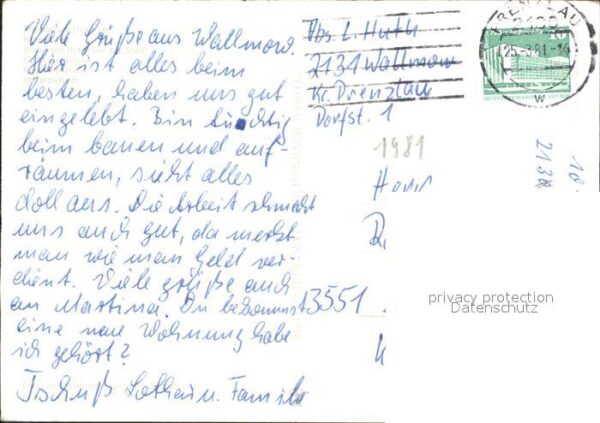 Viele Grüße aus Wallmow.
Hier ist alles beim
besten, haben uns gut
eingelebt. Bin tüchtig
beim bauen und auf-
räumen, sieht alles
doll aus. Die Arbeit schmeckt
uns auch gut, da merkt
man wie man Geld ver-
dient. Viele grüße auch
an Martina. Du bekommst
eine neue Wohnung habe
ich gehört?
Tschüß Lothar u. Familie
Abs. L. Huth
2131 Wallmow
Kr. Prenzlau
Dorfst. 1
1981
PRENZLAU
2130
25.-8.81.-16
w
2130
10
Herr
R
3551
privacy protection
Datenschutz